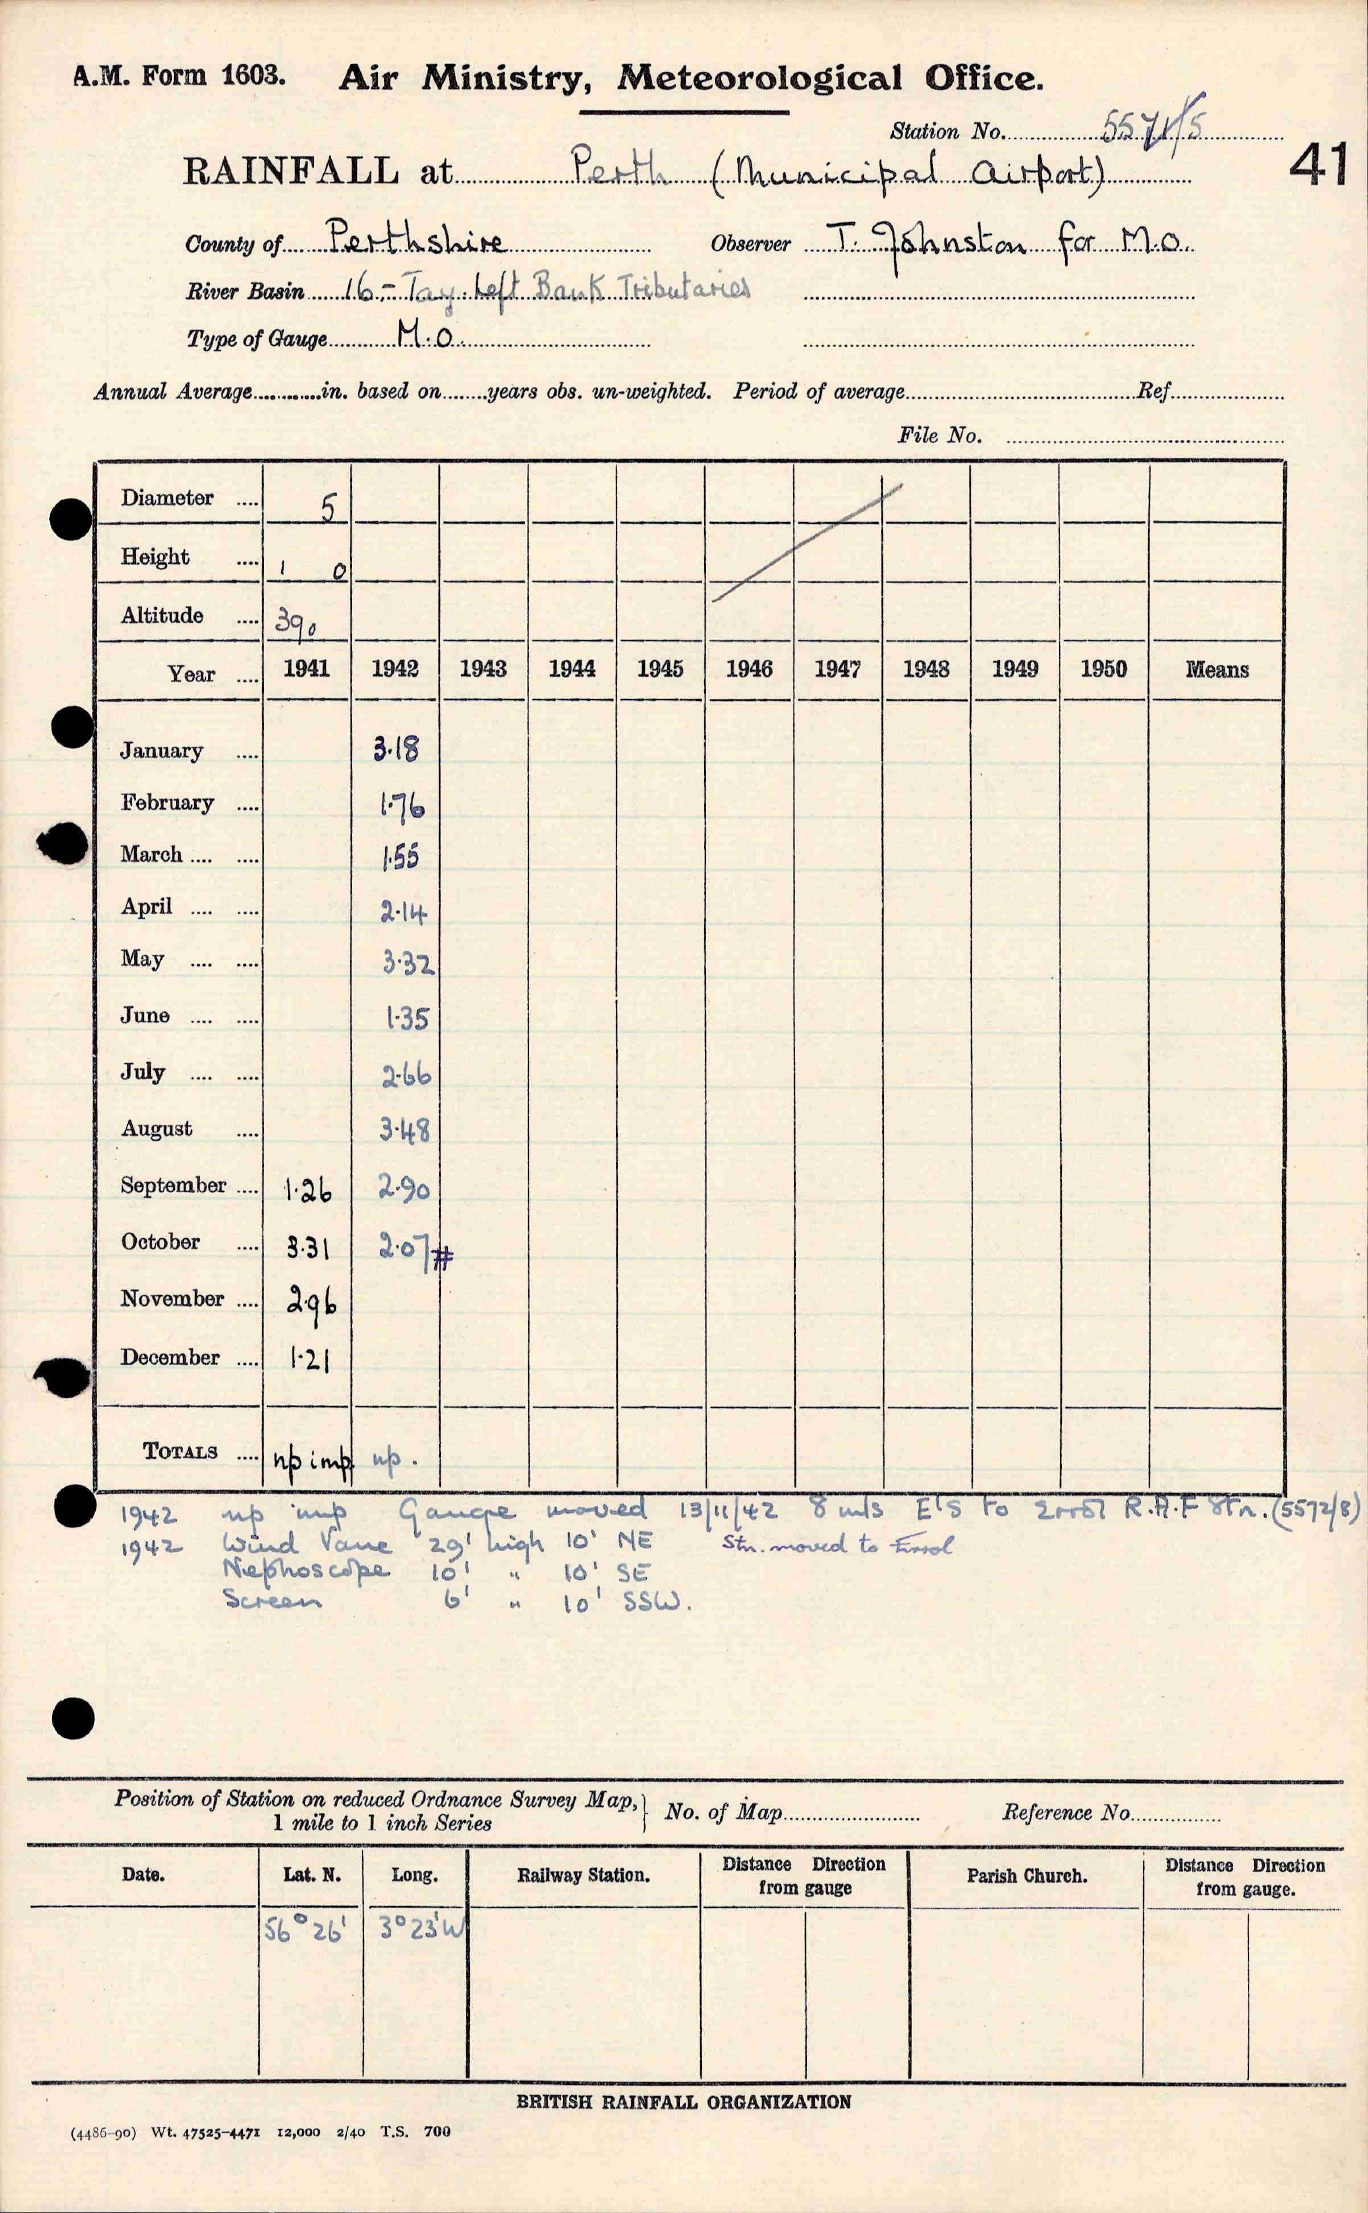 A.M. Form 1603. Air Ministry, Meteorological Office.
Station No. 5571/5
41
RAINFALL at Perth (Municipal Airport)
County of Perthshire Observer T. Johnston for M.O.
River Basin 16 - Tay Left Bank Tributaries
Type of Gauge M.O.
Annual Average in. based on years obs. un-weighted. Period of average Ref
File No.
Diameter 5
Height 1 0
Altitude 390
Year 1941 1942 1943 1944 1945 1946 1947 1948 1949 1950 Means
January 3.18
February 1.76
March 1.55
April 2.14
May 3.32
June 1.35
July 2.66
August 3.48
September 1.26 2.90
October 3.31 2.07 #
November 2.96
December 1.21
TOTALS np imp np.
1942 np imp Gauge moved 13/11/42 8 mls E'S to Errol R.A.F Stn. (5572/8)
1942 Wind Vane 29' high 10' NE Stn. moved to Errol
Nephoscope 10' " 10' SE
Screen 6' " 10' SSW.
Position of Station on reduced Ordnance Survey Map, 1 mile to 1 inch Series } No. of Map Reference No.
Date. Lat. N. Long. Railway Station. Distance Direction from gauge Parish Church. Distance Direction from gauge.
56° 26' 3° 23' W
BRITISH RAINFALL ORGANIZATION
(4486-90) Wt. 47525-4471 12,000 2/40 T.S. 700